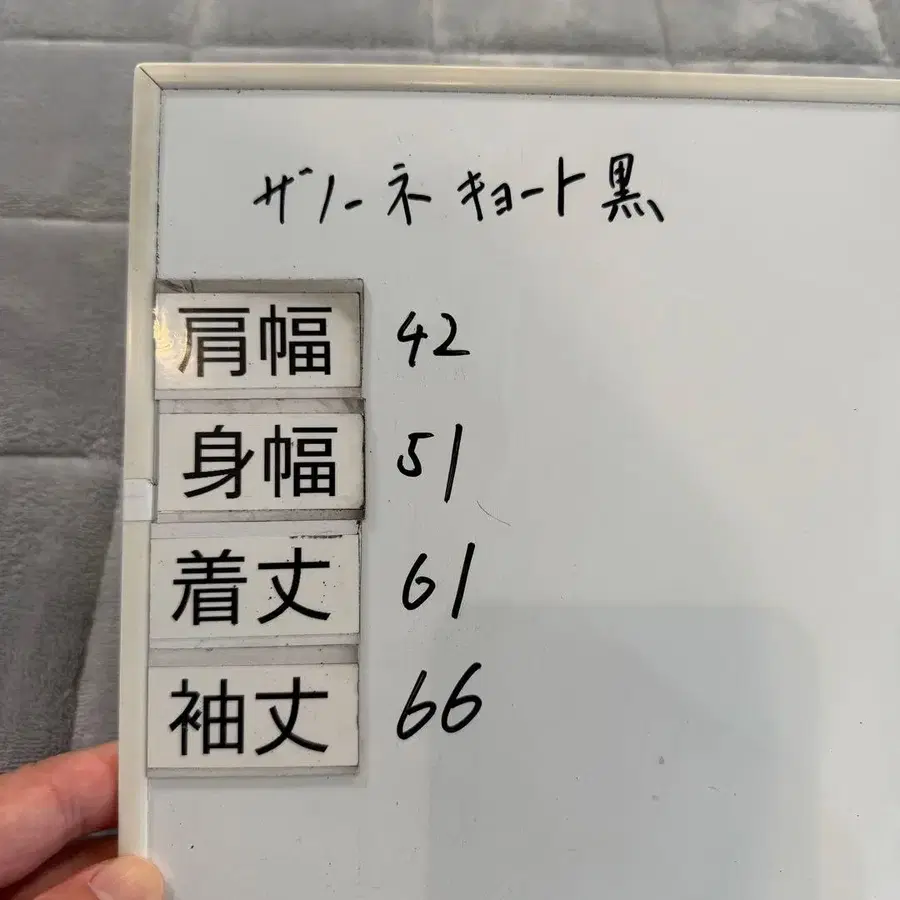 ザノーネ キョート 黒
肩幅 42
身幅 51
着丈 61
袖丈 66